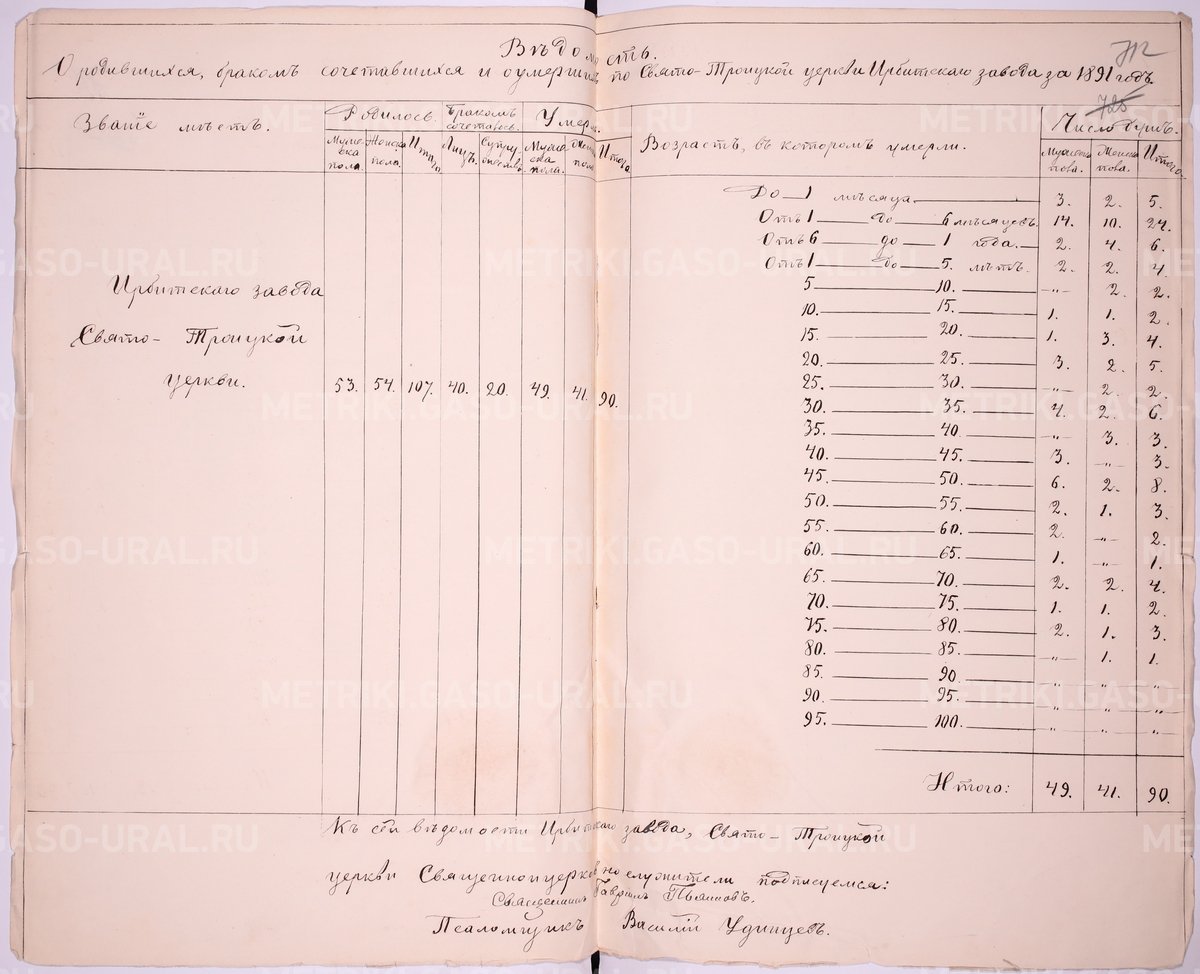 Вѣдомость.
712
О родившихся, бракомъ сочетавшихся и оумершихъ по Свято-Троицкой церкви Ирбитскаго завода за 1891 годъ.
725
Званіе мѣстъ. Родилось. Бракомъ сочеталось. Умерли. Возрастъ, въ которомъ умерли. Число душъ.
Мужеска пола. Женска пола. Итого Лицъ. Супружествъ. Мужеска пола. Женска пола. Итого Мужеска пола. Женска пола. Итого.
До 1 мѣсяца 3. 2. 5.
Отъ 1 до 6 мѣсяцевъ. 14. 10. 24.
Отъ 6 до 1 года. 2. 4. 6.
Отъ 1 до 5. лѣтъ. 2. 2. 4.
5 10. -"- 2. 2.
10. 15. 1. 1. 2.
15. 20. 1. 3. 4.
20. 25. 3. 2. 5.
25. 30. -"- 2. 2.
30. 35. 4. 2. 6.
35. 40. -"- 3. 3.
40. 45. 3. -"- 3.
45. 50. 6. 2. 8.
50. 55. 2. 1. 3.
55. 60. 2. -"- 2.
60. 65. 1. -"- 1.
65. 70. 2. 2. 4.
70. 75. 1. 1. 2.
75. 80. 2. 1. 3.
80. 85. -"- 1. 1.
85. 90. -"- -"- -"-
90. 95. -"- -"- -"-
95. 100. -"- -"- -"-
Итого: 49. 41. 90.
Ирбитскаго завода
Свято-Троицкой
церкви. 53. 54. 107. 40. 20. 49. 41. 90.
Къ сей вѣдомости Ирбитскаго завода, Свято-Троицкой
церкви Священноцерковнослужители подписуемся:
Священникъ Гавріилъ Пьянковъ.
Псаломщикъ Василій Удинцевъ.
METRIKI.GASO-URAL.RU